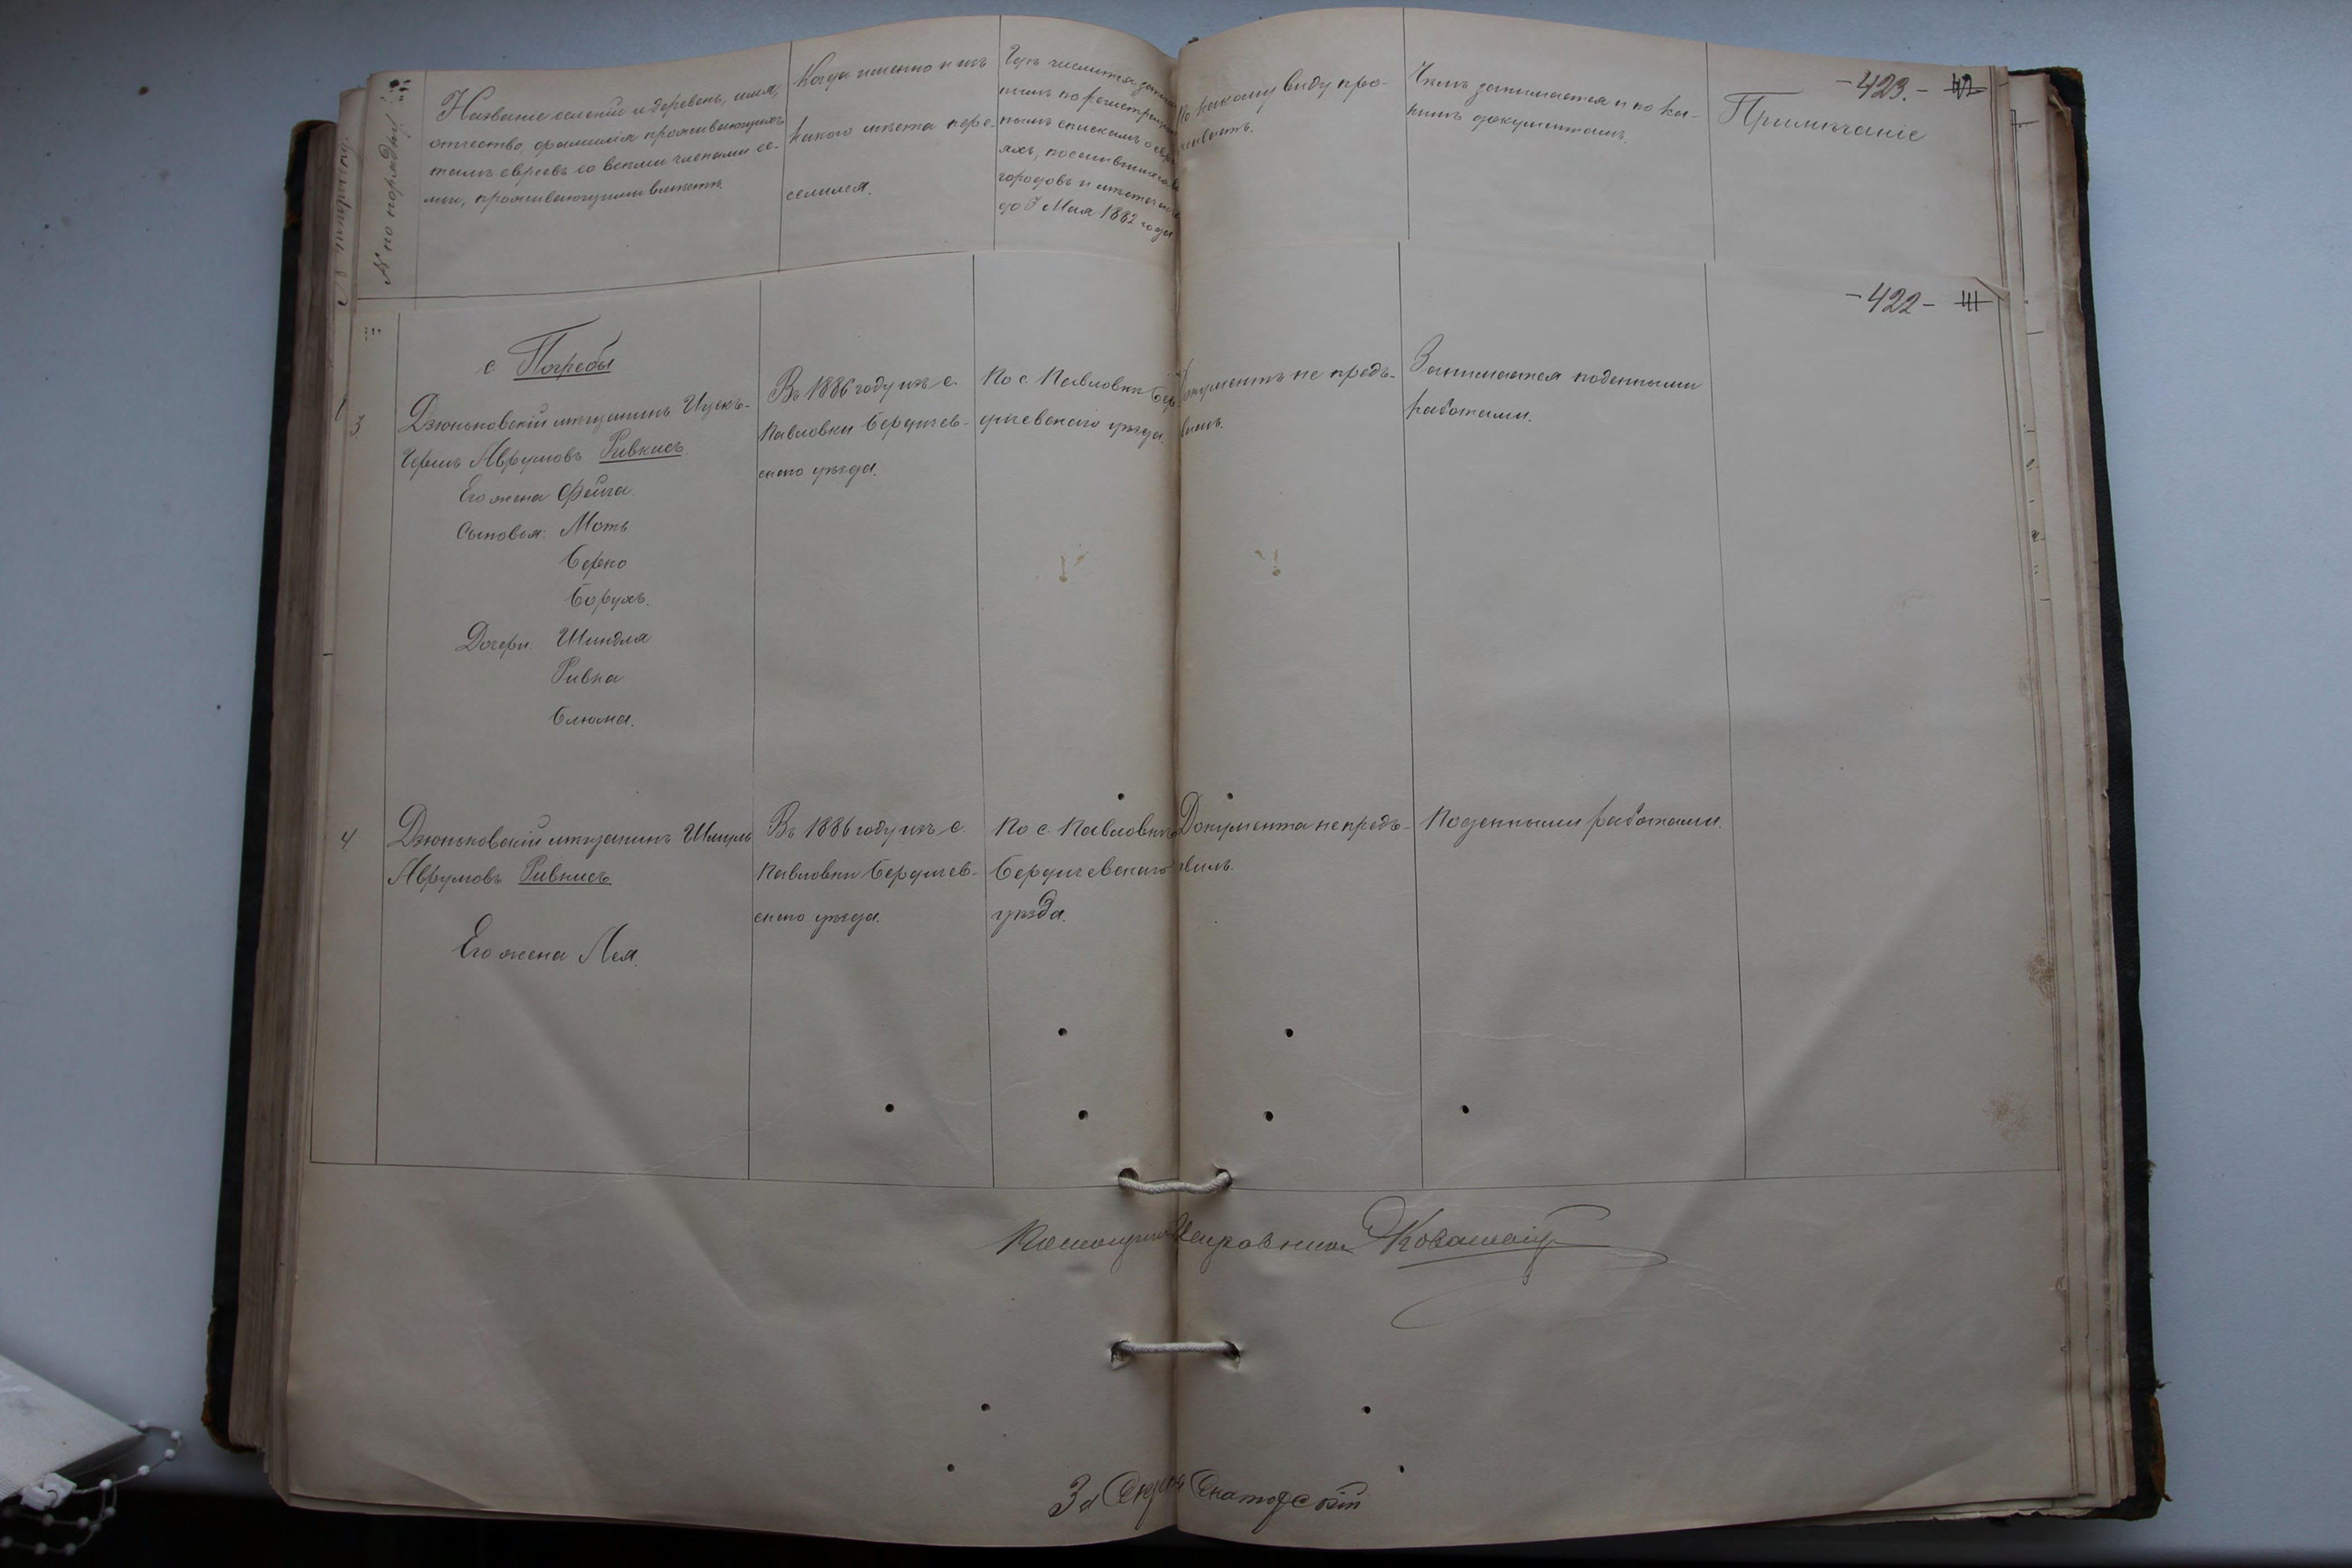 -423.- 42
№ по порядку.
Названіе селеній и деревень, имя,
отчество, фамилія проживающихъ
тамъ евреевъ со всеми членами се-
мьи, проживающими вместе.
Когда именно и изъ
какого места пере-
селился.
Где числится
нымъ спискамъ о евре-
яхъ, поселившихся вне
городовъ и местечекъ
до 3 Мая 1882 года
По какому виду про-
живаетъ.
Чемъ занимается и по ка-
кимъ документамъ.
Примечаніе
-422- 41
с. Погребы
3
Дзюньковскій мещанинъ Ицекъ-
Гершъ Аврумовъ Ривкисъ.
Его жена Фейга.
Сыновья: Моть
Берко
Борухъ.
Дочери. Шиндля
Ривка
Блюма.
Въ 1886 году изъ с.
Павловки Бердичев-
скаго уезда.
По с. Павловки Бер-
дичевскаго уезда.
Документъ не предъ-
вилъ.
Занимается поденными
работами.
4
Дзюньковскій мещанинъ Шмуль
Аврумовъ Ривкисъ
Его жена Лея.
Въ 1886 году изъ с.
Павловки Бердичев-
скаго уезда.
По с. Павловки
Бердичевскаго
уезда.
Документа не предъ-
явилъ.
Поденными работами.
Помощникъ Исправника
За Секрет.